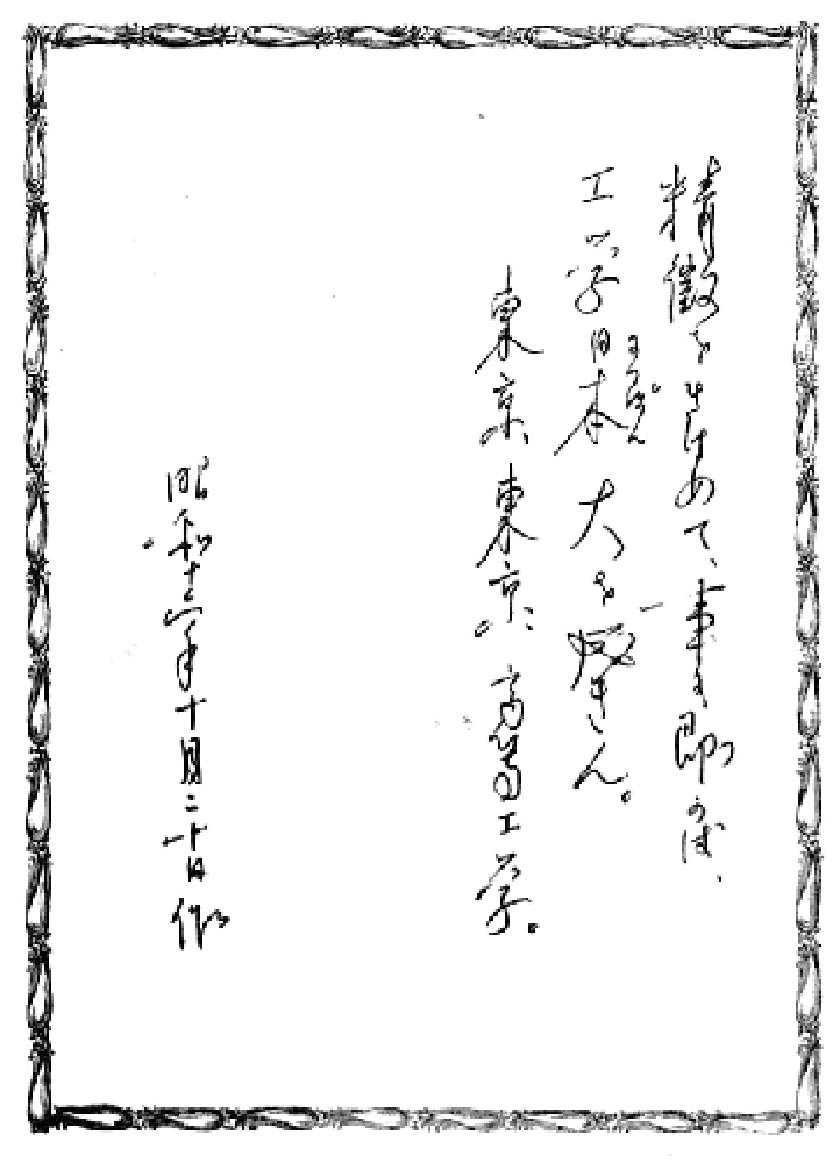 精微をきはめて、事に即かば、
工学日本大を成さん。
にっぽん
東京、東京、高等工学。
昭和十二年十月二十日作